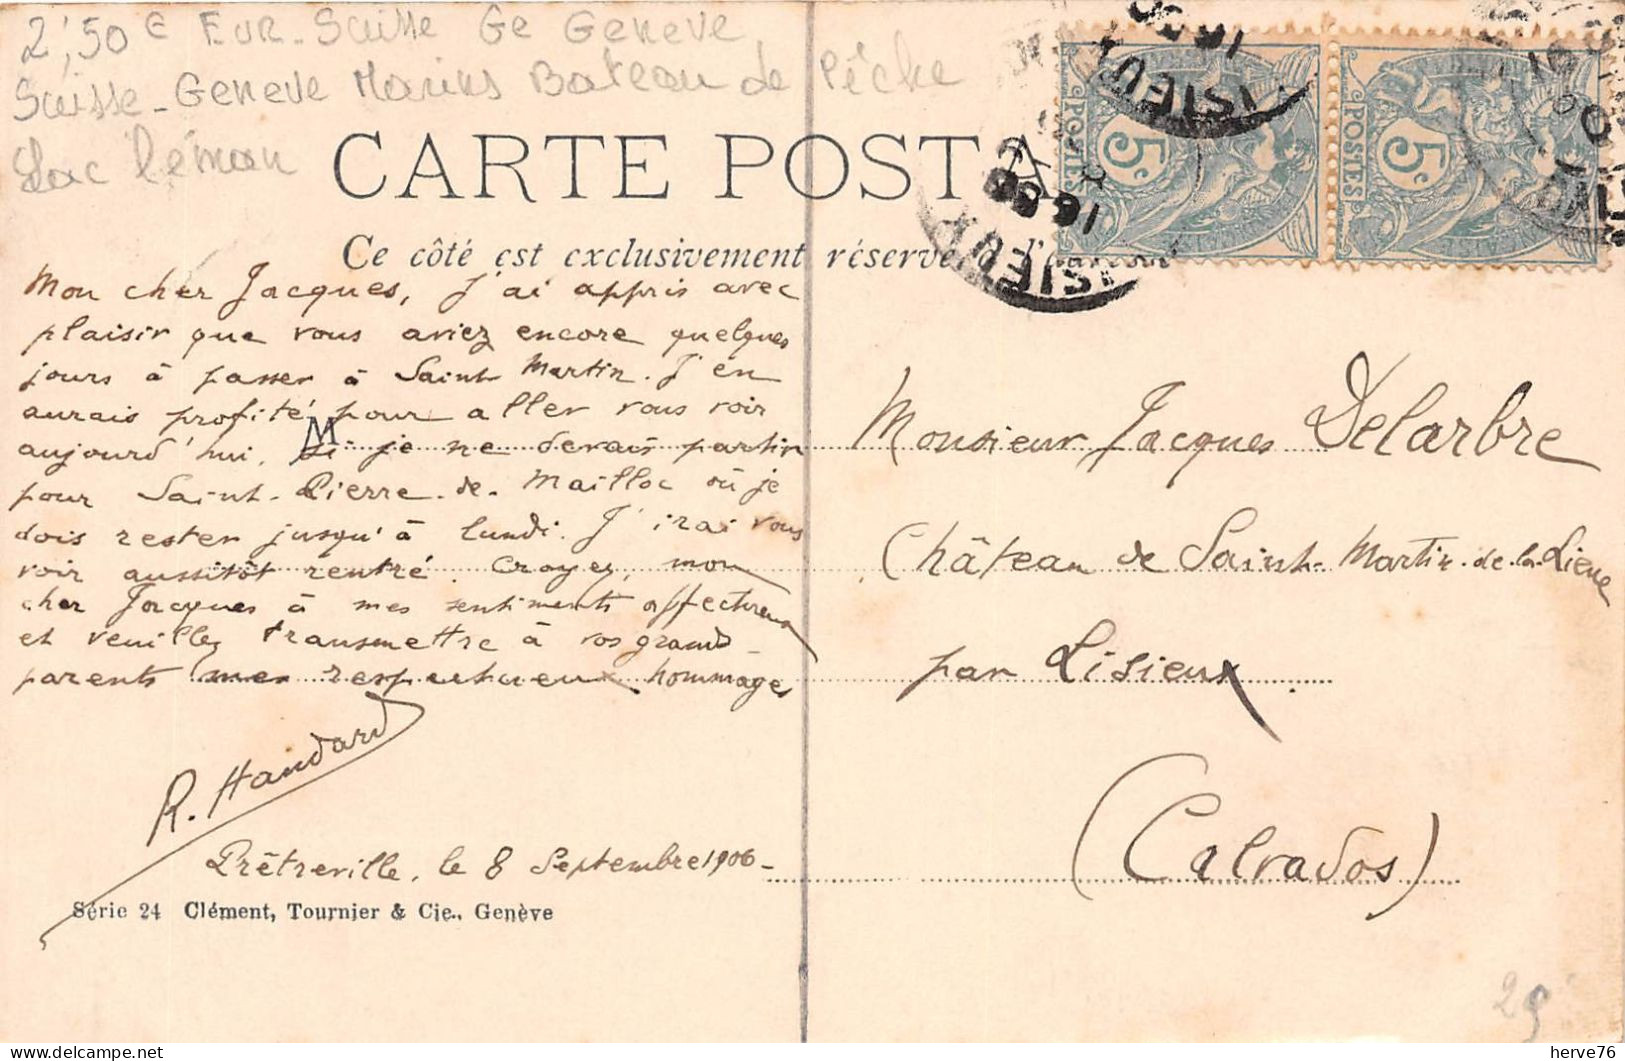 2,50 € EUR - Suisse Ge Geneve
Suisse - Geneve Marins Bateau de Pêche
Lac léman
CARTE POSTA
Ce côté est exclusivement réservé à l'adresse
Mon cher Jacques, J'ai appris avec
plaisir que vous aviez encore quelques
jours à passer à Saint Martin. J'en
aurais profité pour aller vous voir
aujourd'hui, si je ne devais partir
pour Saint-Pierre-de-Mailloc où je
dois rester jusqu'à lundi. J'irai vous
voir aussitôt rentré. Croyez, mon
cher Jacques à mes sentiments affectueux
et veuillez transmettre à vos grands
parents mes respectueux hommages
R. Handard
Prêtreville, le 8 Septembre 1906-
Série 24 Clément, Tournier & Cie., Genève
5c POSTES
5c POSTES
16 50
LISIEUX
16 50
LISIEUX
M
Monsieur Jacques Delarbre
Château de Saint-Martin-de-la-Lieue
par Lisieux
(Calvados)
25
herve76